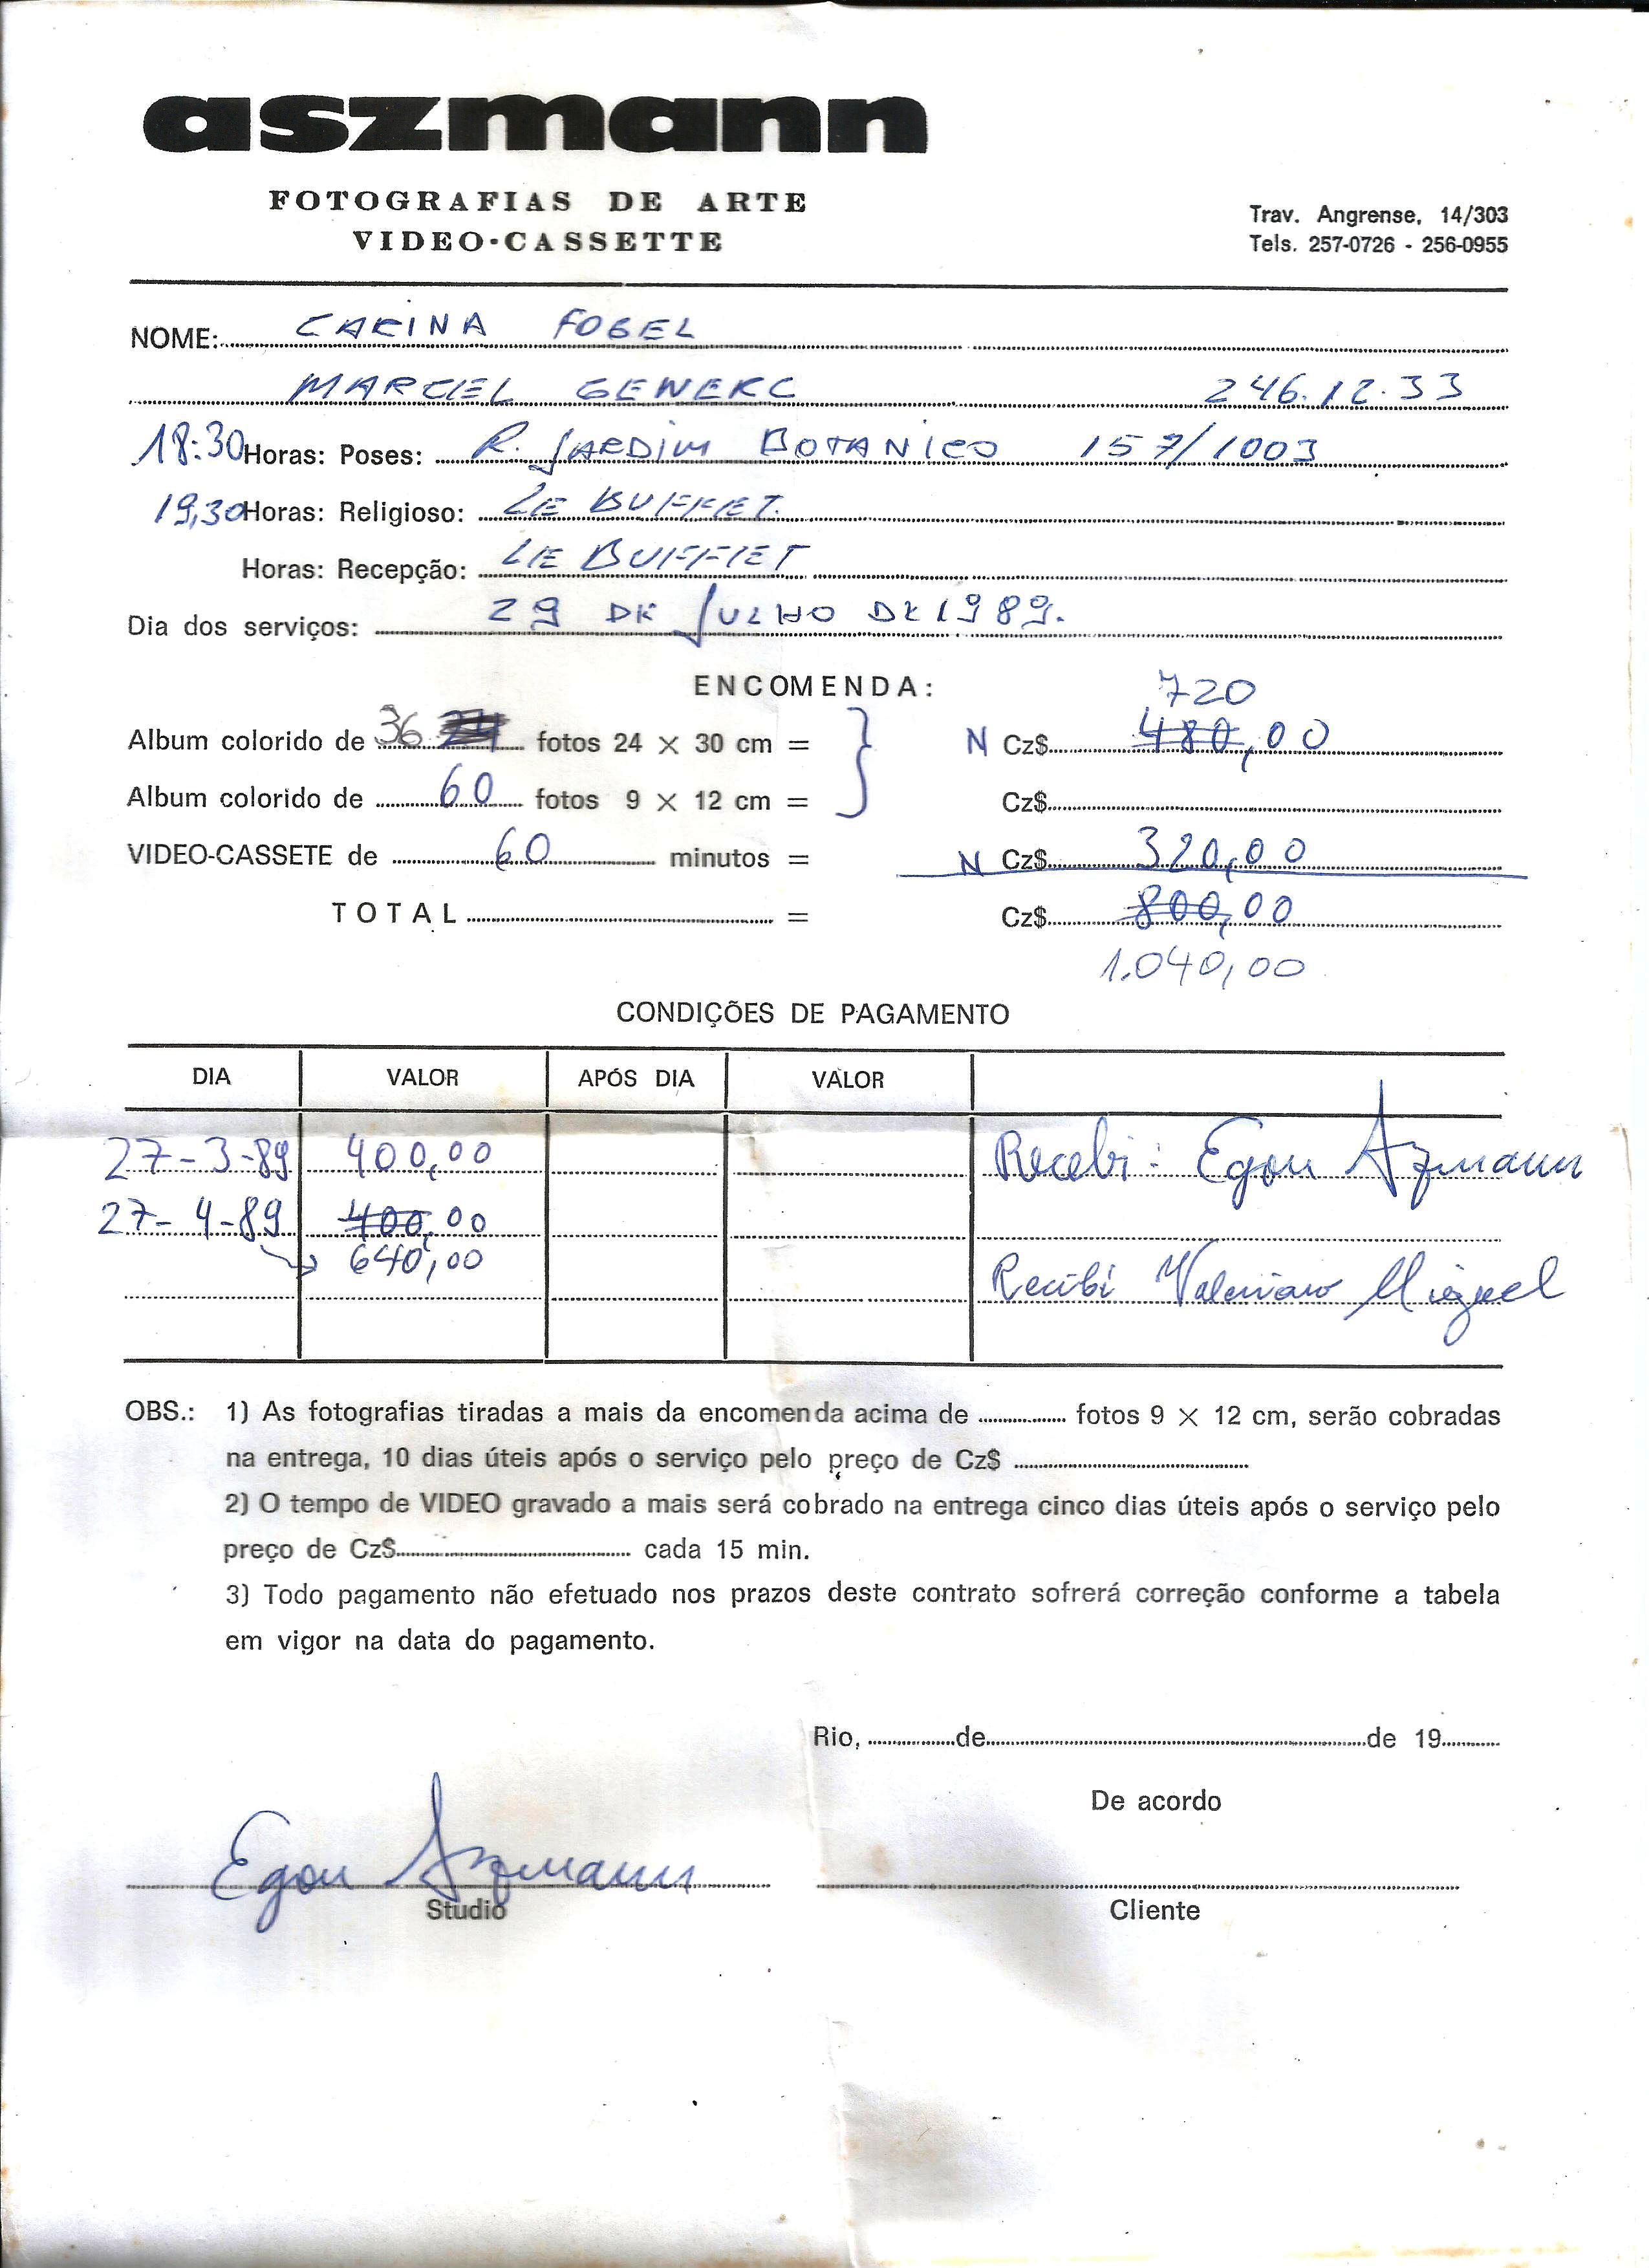 aszmann
FOTOGRAFIAS DE ARTE
VIDEO-CASSETTE
Trav. Angrense, 14/303
Tels. 257-0726 - 256-0955
NOME: CARINA FOGEL
MARCEL GENERC 246.12.33
18:30 Horas: Poses: R. JARDIM BOTANICO 157/1003
19,30 Horas: Religioso: LE BUFFET.
Horas: Recepção: LE BUFFET
Dia dos serviços: 29 DE JULHO DE 1989.
ENCOMENDA: 720
Album colorido de 36 24 fotos 24 × 30 cm = N Cz$ 480,00
Album colorido de 60 fotos 9 × 12 cm = Cz$
VIDEO-CASSETE de 60 minutos = N Cz$ 320,00
TOTAL = Cz$ 800,00
1.040,00
CONDIÇÕES DE PAGAMENTO
DIA VALOR APÓS DIA VALOR
27-3-89 400,00 Recebi: Egon Aszmann
27-4-89 400,00
640,00 Recibi Valeriano Miguel
OBS.: 1) As fotografias tiradas a mais da encomenda acima de fotos 9 × 12 cm, serão cobradas
na entrega, 10 dias úteis após o serviço pelo preço de Cz$
2) O tempo de VIDEO gravado a mais será cobrado na entrega cinco dias úteis após o serviço pelo
preço de Cz$ cada 15 min.
3) Todo pagamento não efetuado nos prazos deste contrato sofrerá correção conforme a tabela
em vigor na data do pagamento.
Rio, de de 19
De acordo
Egon Aszmann
Studio
Cliente